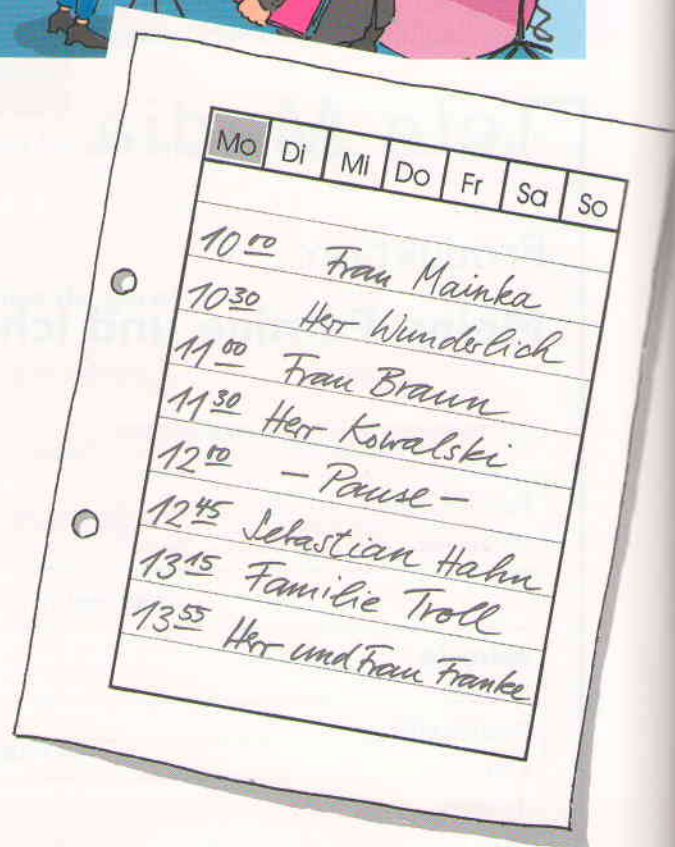 Mo Di Mi Do Fr Sa So
10 00 Frau Mainka
10 30 Herr Wunderlich
11 00 Frau Braun
11 30 Herr Kowalski
12 00 – Pause –
12 45 Sebastian Hahn
13 15 Familie Troll
13 55 Herr und Frau Franke